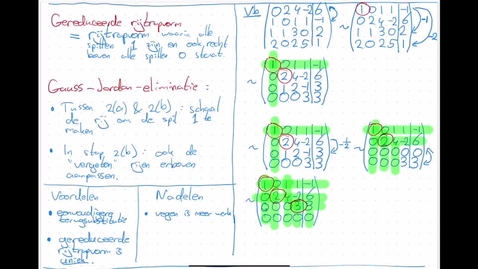 Gereduceerde rijtrapvorm
= rijtrapvorm waarin alle
spillen 1 zijn en ook recht
boven alle spillen 0 staat.
Gauss-Jordan-eliminatie:
• Tussen 2(a) & 2(b): schaal
de rij om de spil 1 te
maken
• In stap 2(b): ook de
"vergeten" rijen erboven
aanpassen.
Voordelen
• eenvoudigere
terugsubstitutie
• gereduceerde
rijtrapvorm is
uniek.
Nadelen
• vegen is meer werk
Vb
0 2 4 -2 6
1 0 1 1 -1
1 1 3 0 2
2 0 2 5 1
~
1 0 1 1 -1
0 2 4 -2 6
1 1 3 0 2
2 0 2 5 1
-1
-2
~
1 0 1 1 -1
0 2 4 -2 6
0 1 2 -1 3
0 0 0 3 3
~
1 0 1 1 -1
0 2 4 -2 6
0 1 2 -1 3
0 0 0 3 3
-1/2
~
1 0 1 1 -1
0 2 4 -2 6
0 0 0 0 0
0 0 0 3 3
~
1 0 1 1 -1
0 2 4 -2 6
0 0 0 3 3
0 0 0 0 0